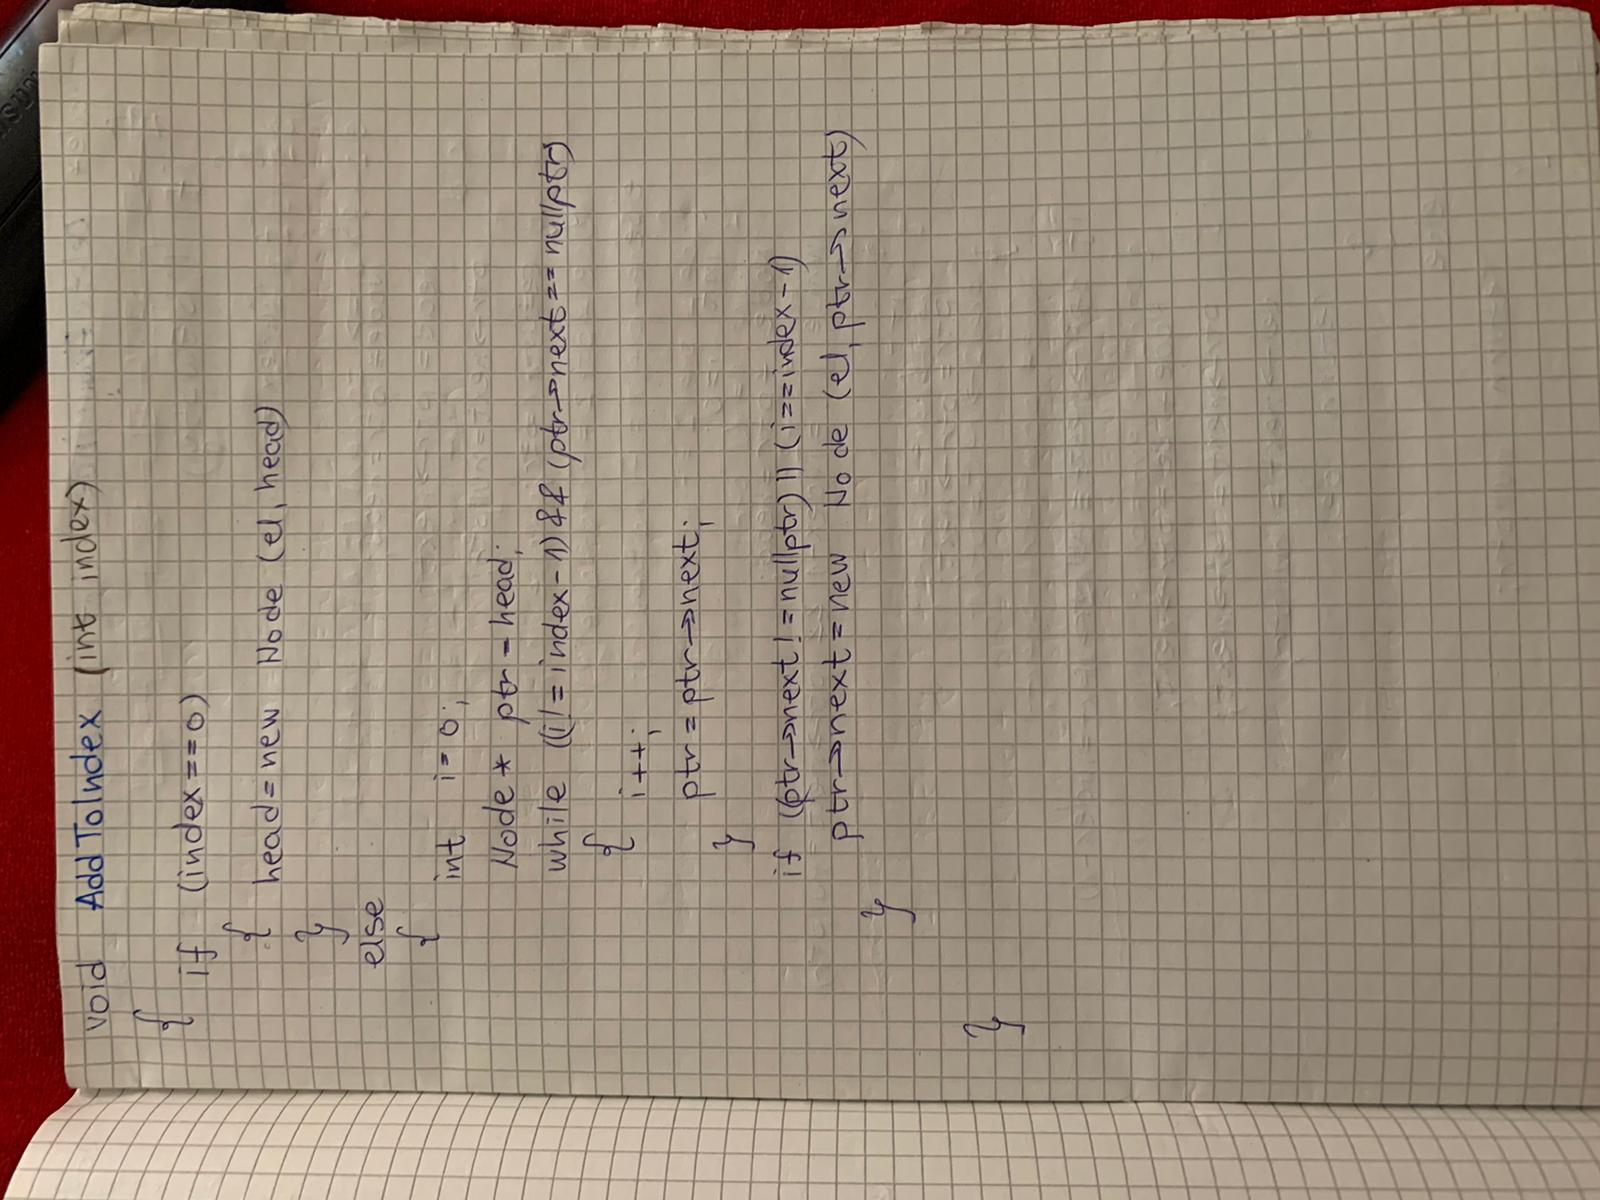 void AddToIndex (int index)
{
if (index==0)
{ head=new Node (el, head)
}
else
{
int i=0;
Node* ptr=head;
while ((i!=index-1)&&(ptr->next==nullptr)
{ i++;
ptr=ptr->next;
}
if ((ptr->next!=nullptr)||(i==index-1)
ptr->next=new Node (el, ptr->next)
}
}